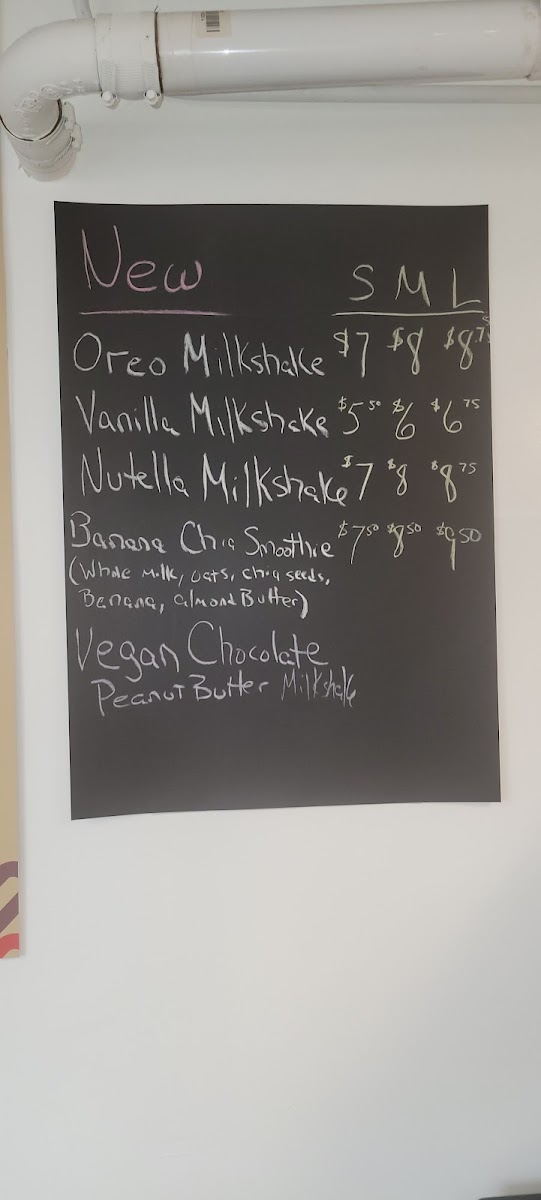 New S M L
Oreo Milkshake $7 $8 $8.75
Vanilla Milkshake $5.50 $6 $6.75
Nutella Milkshake $7 $8 $8.75
Banana Chia Smoothie $7.50 $8.50 $9.50
(Whole Milk, oats, chia seeds,
Banana, almond Butter)
Vegan Chocolate
Peanut Butter Milkshake